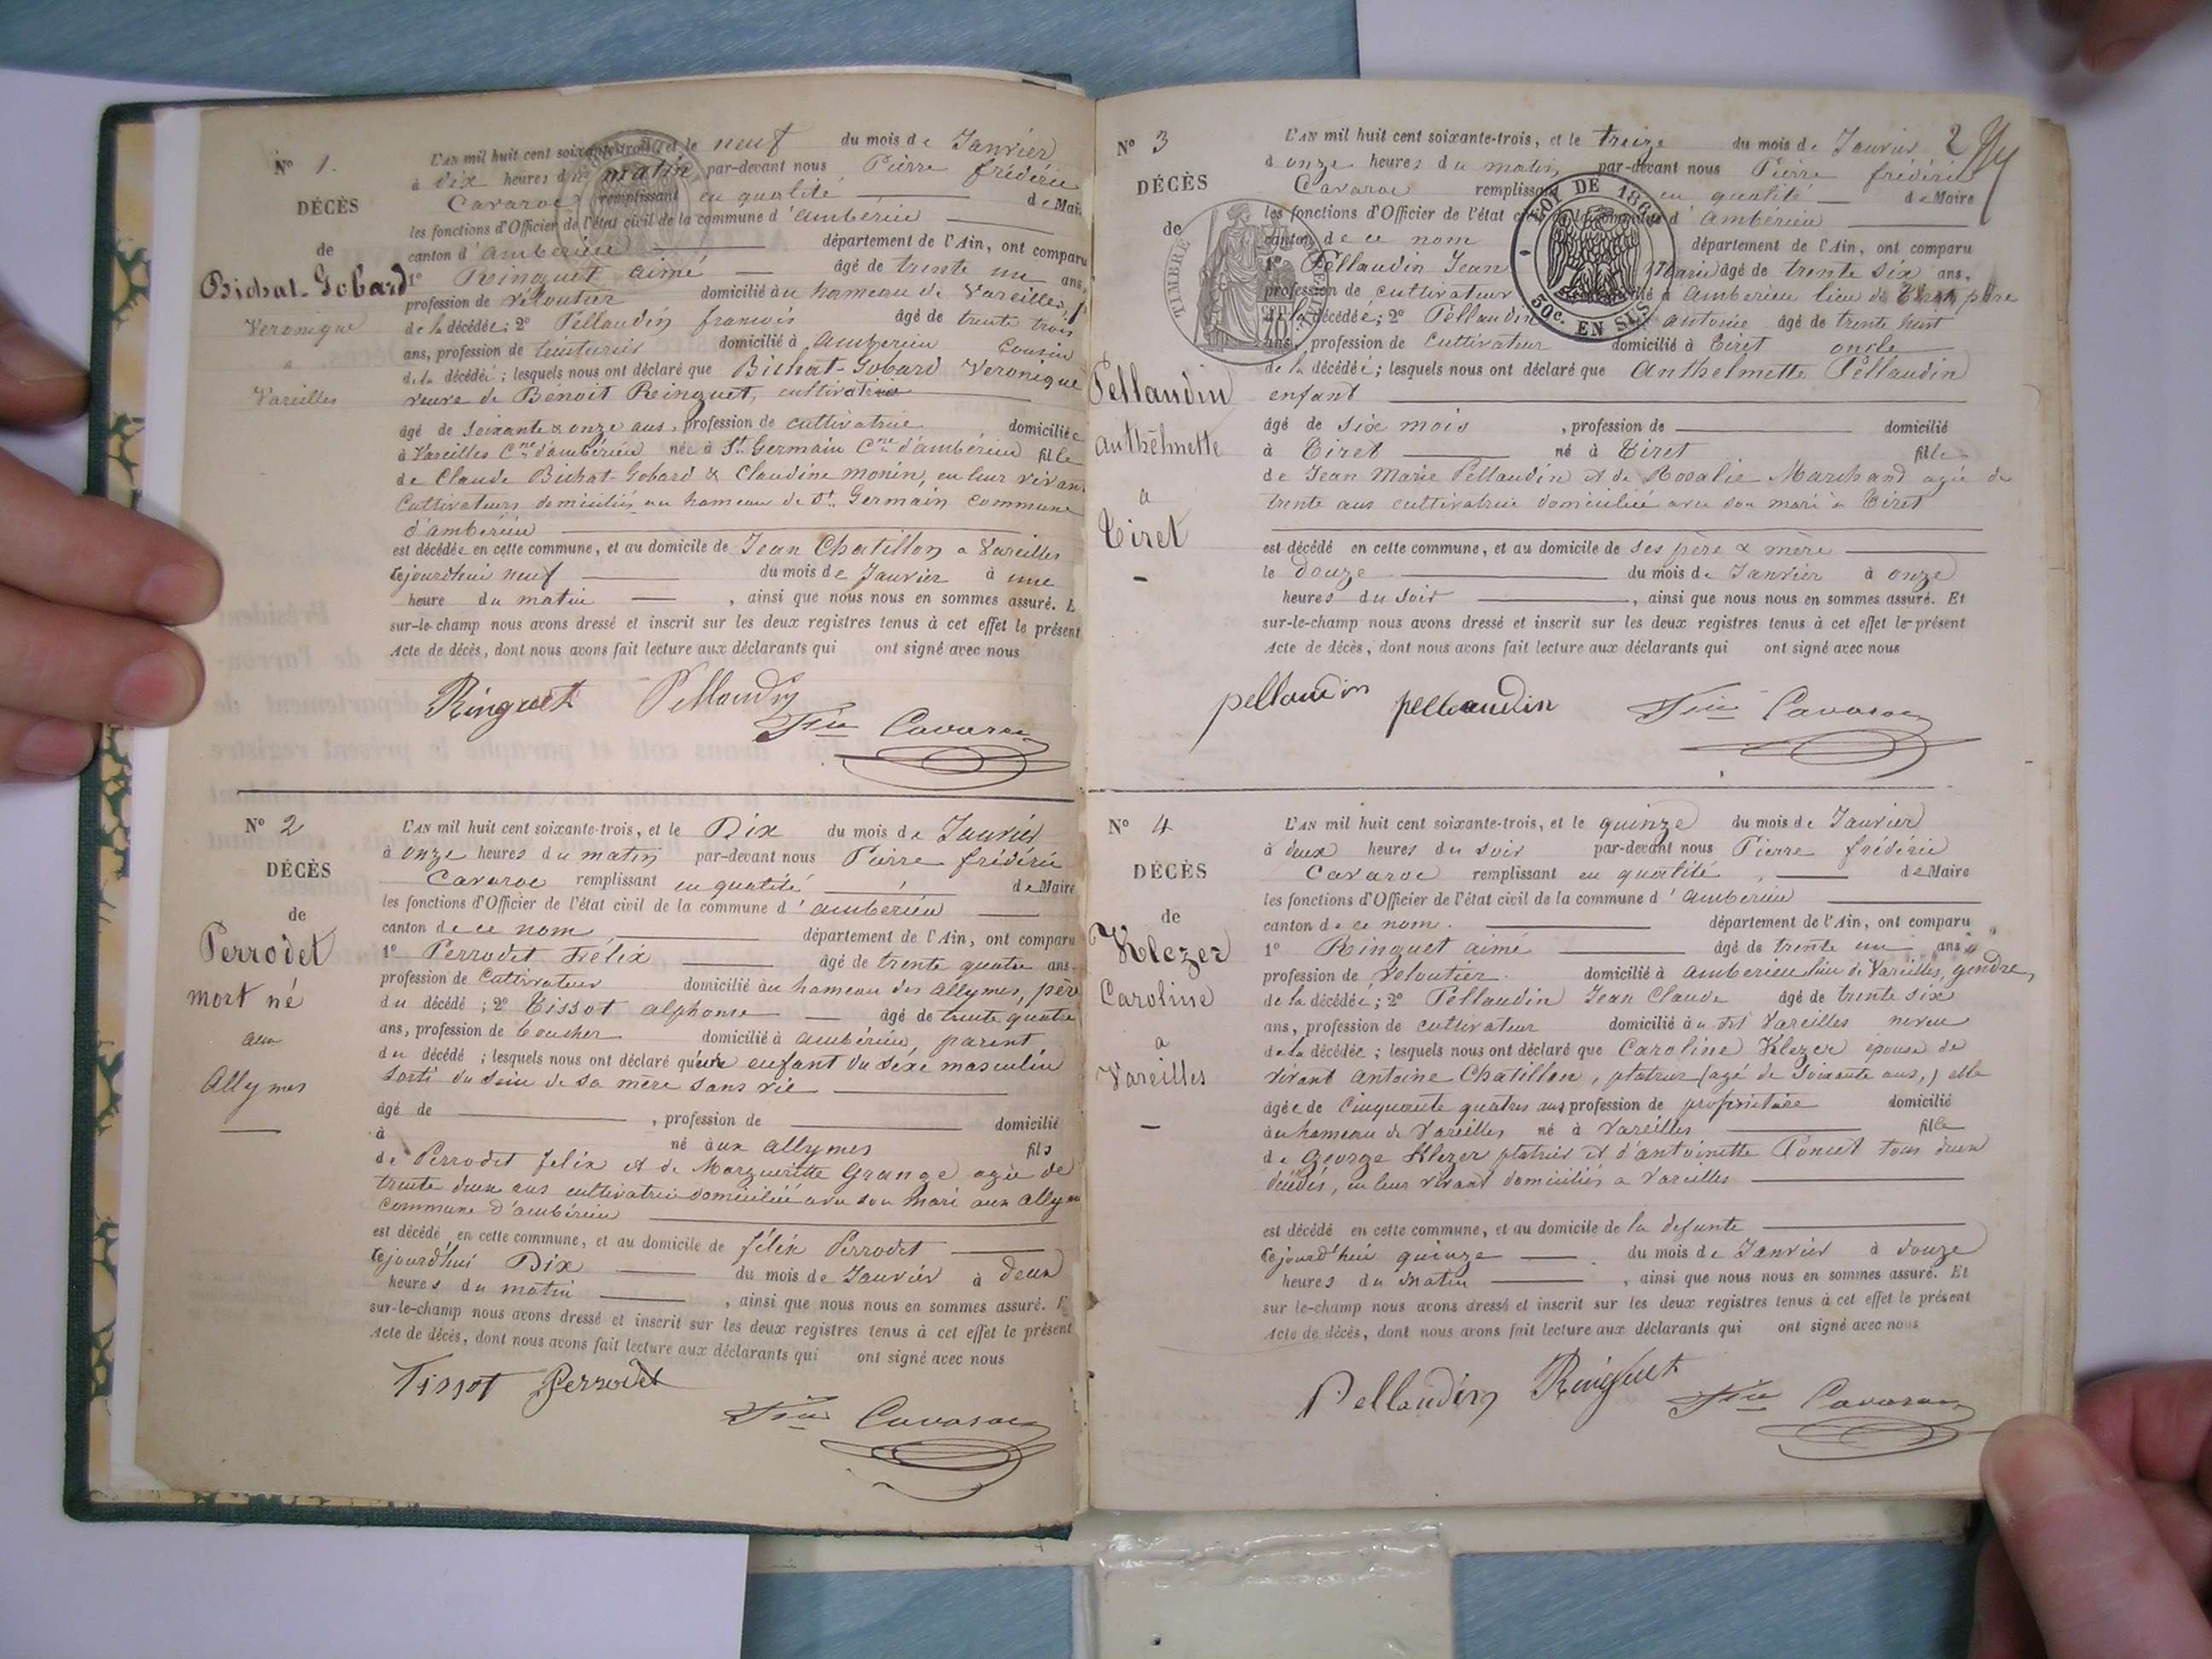 N° 1.
DÉCÈS
de
Bichat-Gobard
Veronique
a
Vareilles
L'AN mil huit cent soixante-trois, et le neuf du mois de Janvier
à dix heures du matin par-devant nous Pierre frédéric
Cavaroc remplissant en qualité de Mai
les fonctions d'Officier de l'état civil de la commune d'ambérieu
canton d'ambérieu département de l'Ain, ont comparu
1° Ringuet aimé âgé de trente un ans,
profession de veloutier domicilié au hameau de Vareilles,
de la décédée; 2° Pellaudin francois âgé de trente trois
ans, profession de teinturier domicilié à amberieu Cousin
de la décédée; lesquels nous ont déclaré que Bichat-Gobard Veronique
veuve de Benoit Reinguet, cultivatrice
âgé de soixante & onze ans, profession de cultivatrice domiciliée
à Vareilles Cne d'ambérieu née à St Germain Cne d'ambérieu fille
de Claude Bichat-Gobard & Claudine monin, en leur vivant
Cultivateurs domiciliés au hameau de St Germain Commune
d'ambérieu
est décédée en cette commune, et au domicile de Jean Chatillon a Vareilles
cejourdhui neuf du mois de Janvier à une
heure du matin, ainsi que nous nous en sommes assuré. E
sur-le-champ nous avons dressé et inscrit sur les deux registres tenus à cet effet le présent
Acte de décès, dont nous avons fait lecture aux déclarants qui ont signé avec nous
Ringuet Pellaudin
Cavaroc
N° 2
DÉCÈS
de
Perrodet
mort né
aux
Allymes
L'AN mil huit cent soixante-trois, et le Dix du mois de Janvier
à onze heures du matin par-devant nous Pierre frédéric
Cavaroc remplissant en qualité de Maire
les fonctions d'Officier de l'état civil de la commune d'ambérieu
canton de ce nom département de l'Ain, ont comparu
1° Perrodet Félix âgé de trente quatre ans.
profession de Cultivateur domicilié au hameau des allymes, père
du décédé; 2° Tissot alphonse âgé de trente quatre
ans, profession de boucher domicilié à ambérieu, parent
du décédé; lesquels nous ont déclaré qu'une enfant du sexe masculin
sorti du sein de sa mère sans vie
âgé de, profession de domicilié
à né aux allymes fils
de Perrodet felix et de Margueritte Grange agée de
trente deux ans cultivatrice domiciliée avec son mari aux allymes
Commune d'ambérieu
est décédé en cette commune, et au domicile de félix Perrodet
cejourd'hui Dix du mois de Janvier à deux
heures du matin, ainsi que nous nous en sommes assuré. E
sur-le-champ nous avons dressé et inscrit sur les deux registres tenus à cet effet le présent
Acte de décès, dont nous avons fait lecture aux déclarants qui ont signé avec nous
Tissot Perrodet
Cavaroc
2
N° 3
DÉCÈS
de
Pellaudin
anthelmette
a
Tiret
TIMBRE
LOI DE 186
50c. EN SUS
L'AN mil huit cent soixante-trois, et le treize du mois de Janvier
à onze heures du matin par-devant nous Pierre frédéric
Cavaroc remplissant en qualité de Maire
les fonctions d'Officier de l'état civil de la commune d'ambérieu
canton de ce nom département de l'Ain, ont comparu
1° Pellaudin Jean Marie âgé de trente six ans,
profession de cultivateur domicilié à amberieu lieu de Tiret père
de la décédée; 2° Pellaudin antoine âgé de trente huit
ans, profession de Cultivateur domicilié à Tiret oncle
de la décédée; lesquels nous ont déclaré que Anthelmette Pellaudin
enfant
âgé de six mois, profession de domicilié
à Tiret né à Tiret fille
de Jean Marie Pellaudin et de Rosalie Marchand agée de
trente ans cultivatrice domiciliée avec son mari a Tiret
est décédé en cette commune, et au domicile de ses père & mère
le douze du mois de Janvier à onze
heures du soir, ainsi que nous nous en sommes assuré. Et
sur-le-champ nous avons dressé et inscrit sur les deux registres tenus à cet effet le présent
Acte de décès, dont nous avons fait lecture aux déclarants qui ont signé avec nous
pellaudin pellaudin Cavaroc
N° 4
DÉCÈS
de
Klezer
Caroline
a
Vareilles
L'AN mil huit cent soixante-trois, et le quinze du mois de Janvier
à deux heures du soir par-devant nous Pierre frédéric
Cavaroc remplissant en qualité de Maire
les fonctions d'Officier de l'état civil de la commune d'ambérieu
canton de ce nom. département de l'Ain, ont comparu
1° Ringuet aimé âgé de trente un ans
profession de Veloutier. domicilié à amberieu lieu de Vareilles, gendre,
de la décédée; 2° Pellaudin Jean Claude âgé de trente six
ans, profession de cultivateur domicilié au dit Vareilles neveu
de la décédée; lesquels nous ont déclaré que Caroline Klezer epouse de
vivant antoine Chatillon, platrier (agé de soixante ans,) elle
âgée de Cinquante quatre ans profession de propriétaire domicilié
au hameau de Vareilles né à Vareilles fille
de George Klezer platrier et d'antoinette Poncet tous deux
décédés, en leur vivant domiciliés a Vareilles
est décédé en cette commune, et au domicile de la defunte
cejourd'hui quinze du mois de Janvier à douze
heures du matin, ainsi que nous nous en sommes assuré. Et
sur le-champ nous avons dressé et inscrit sur les deux registres tenus à cet effet le présent
Acte de décès, dont nous avons fait lecture aux déclarants qui ont signé avec nous
Pellaudin Ringuet
Cavaroc